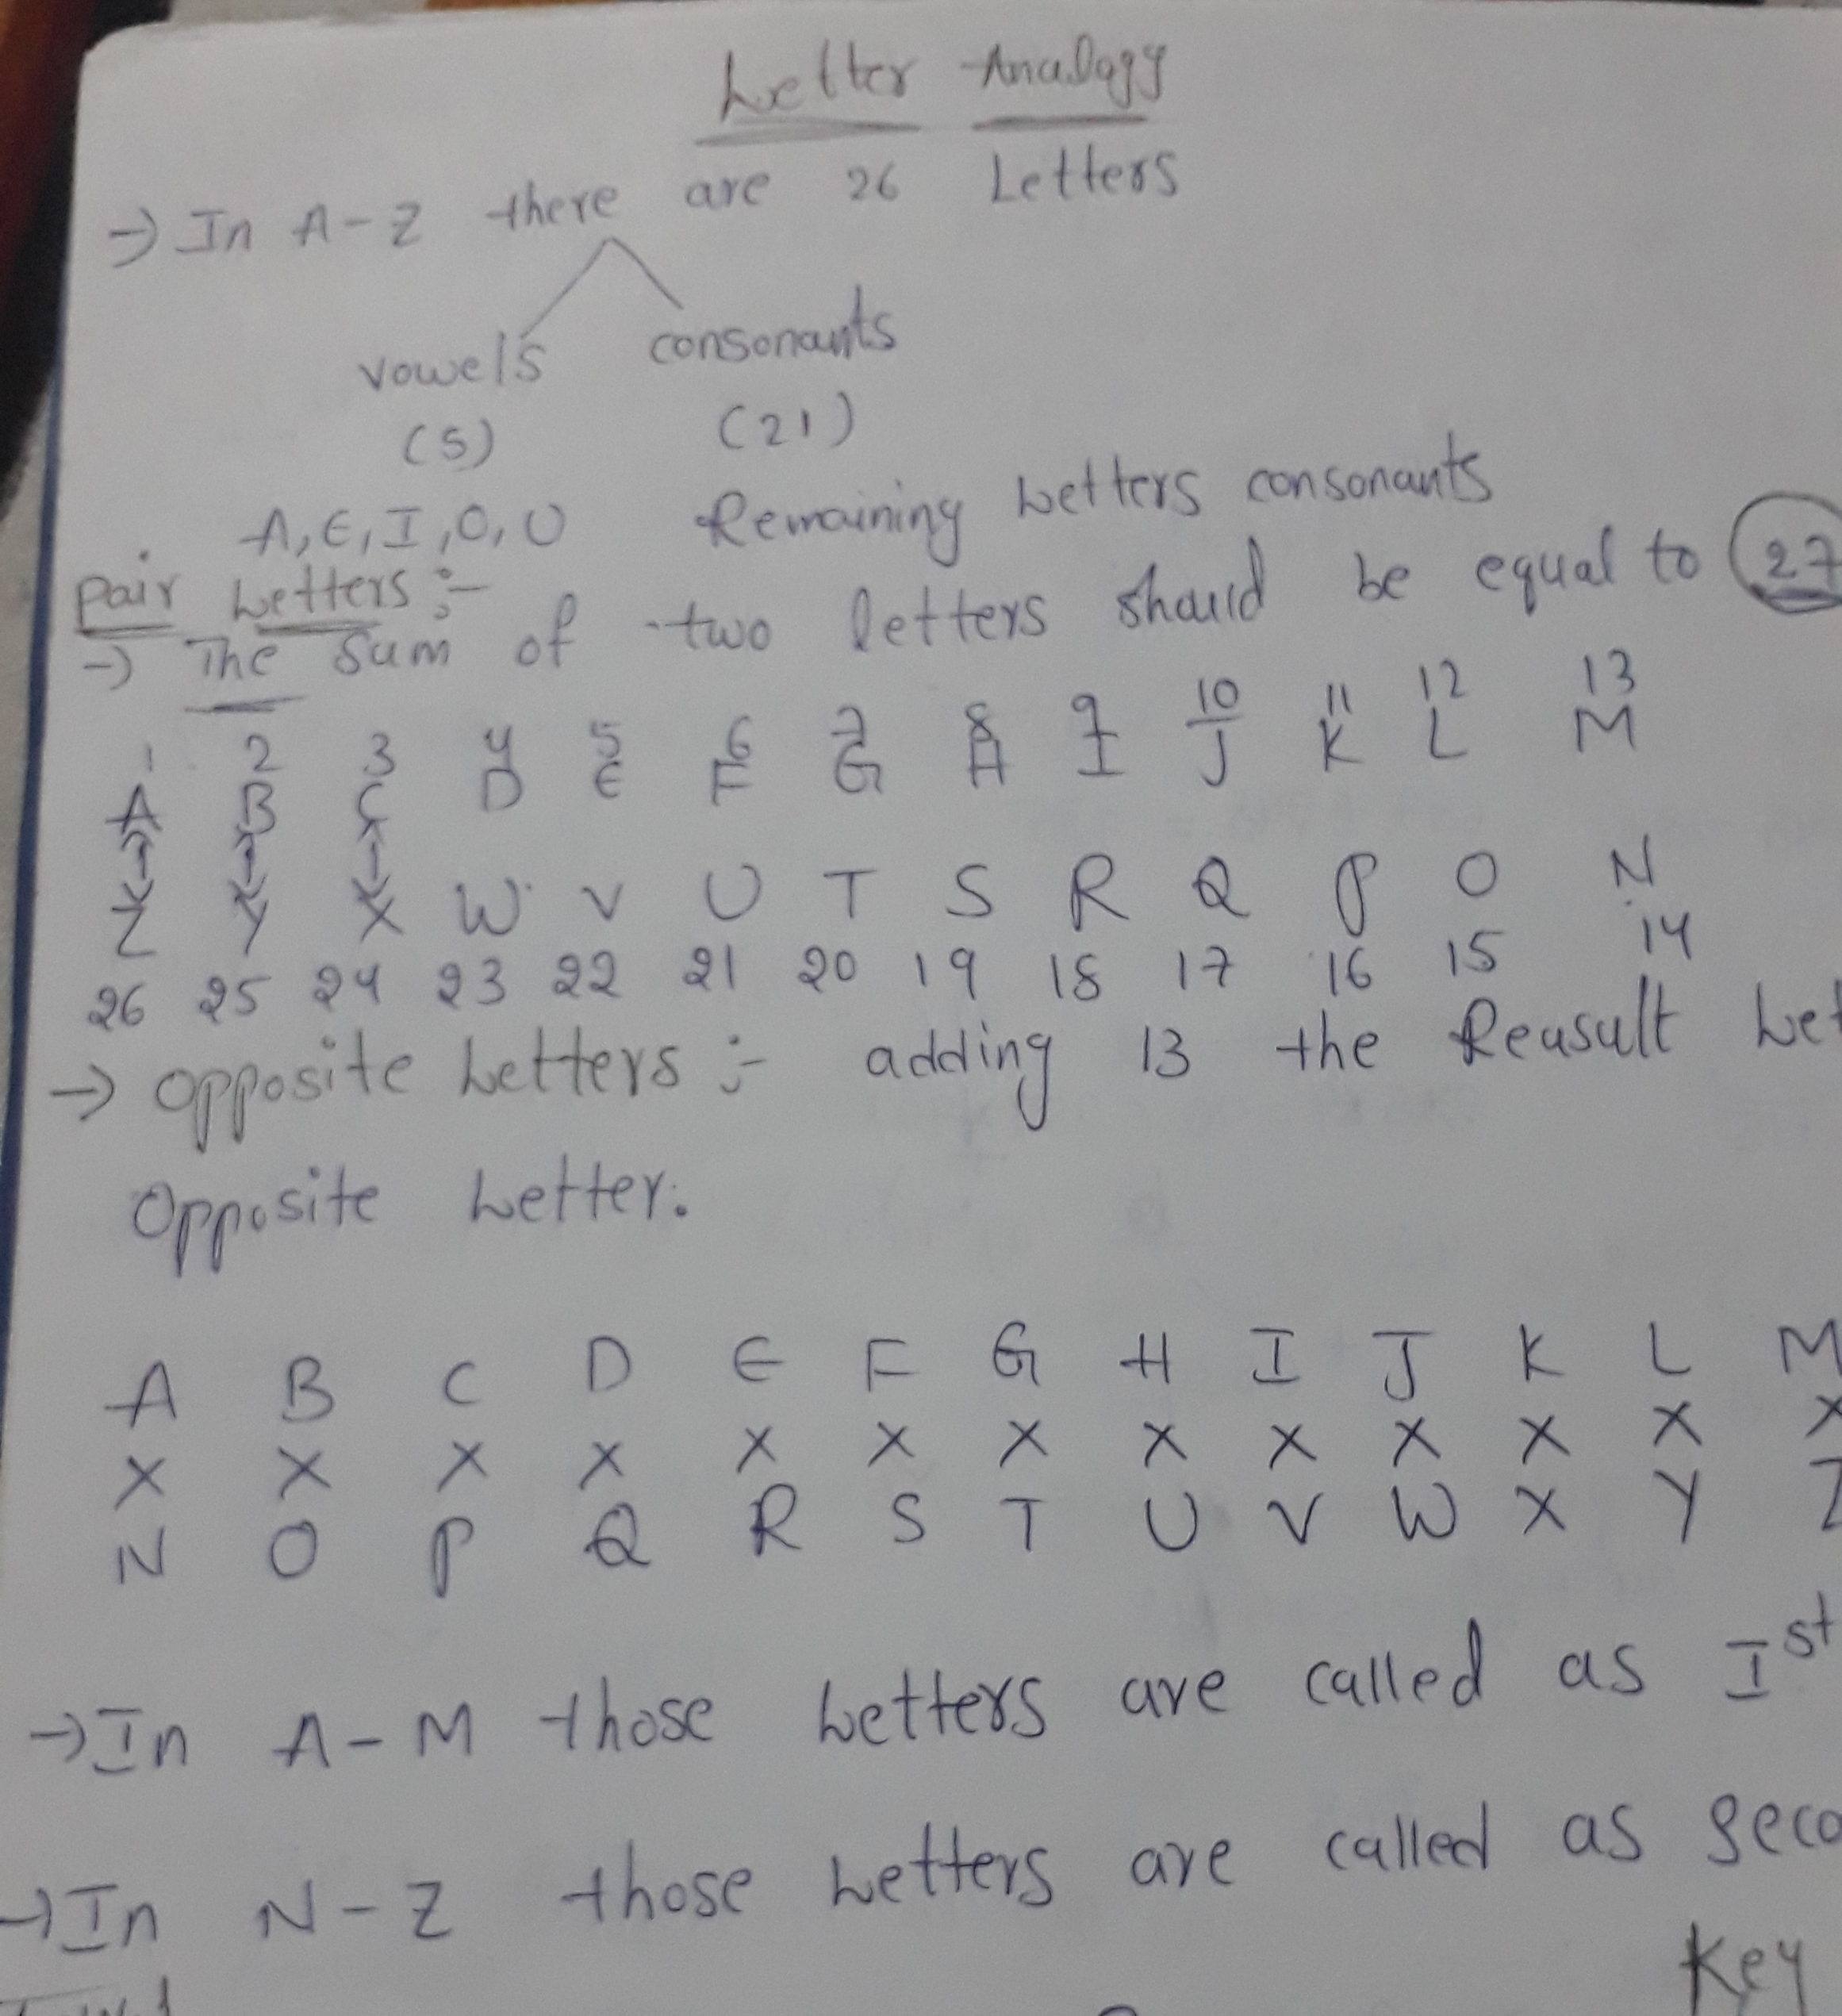 Letter Analogy
→ In A-Z there are 26 Letters
vowels consonants
(5) (21)
A, E, I, O, U Remaining Letters consonants
Pair Letters :-
→ The Sum of two letters should be equal to 27
1 2 3 4 5 6 7 8 9 10 11 12 13
A B C D E F G H I J K L M
Z Y X W V U T S R Q P O N
26 25 24 23 22 21 20 19 18 17 16 15 14
→ Opposite Letters :- adding 13 the Reasult Let
Opposite Letter.
A B C D E F G H I J K L M
X X X X X X X X X X X X X
N O P Q R S T U V W X Y Z
→ In A-M those Letters are called as Ist
→ In N-Z those Letters are called as Seco
Key